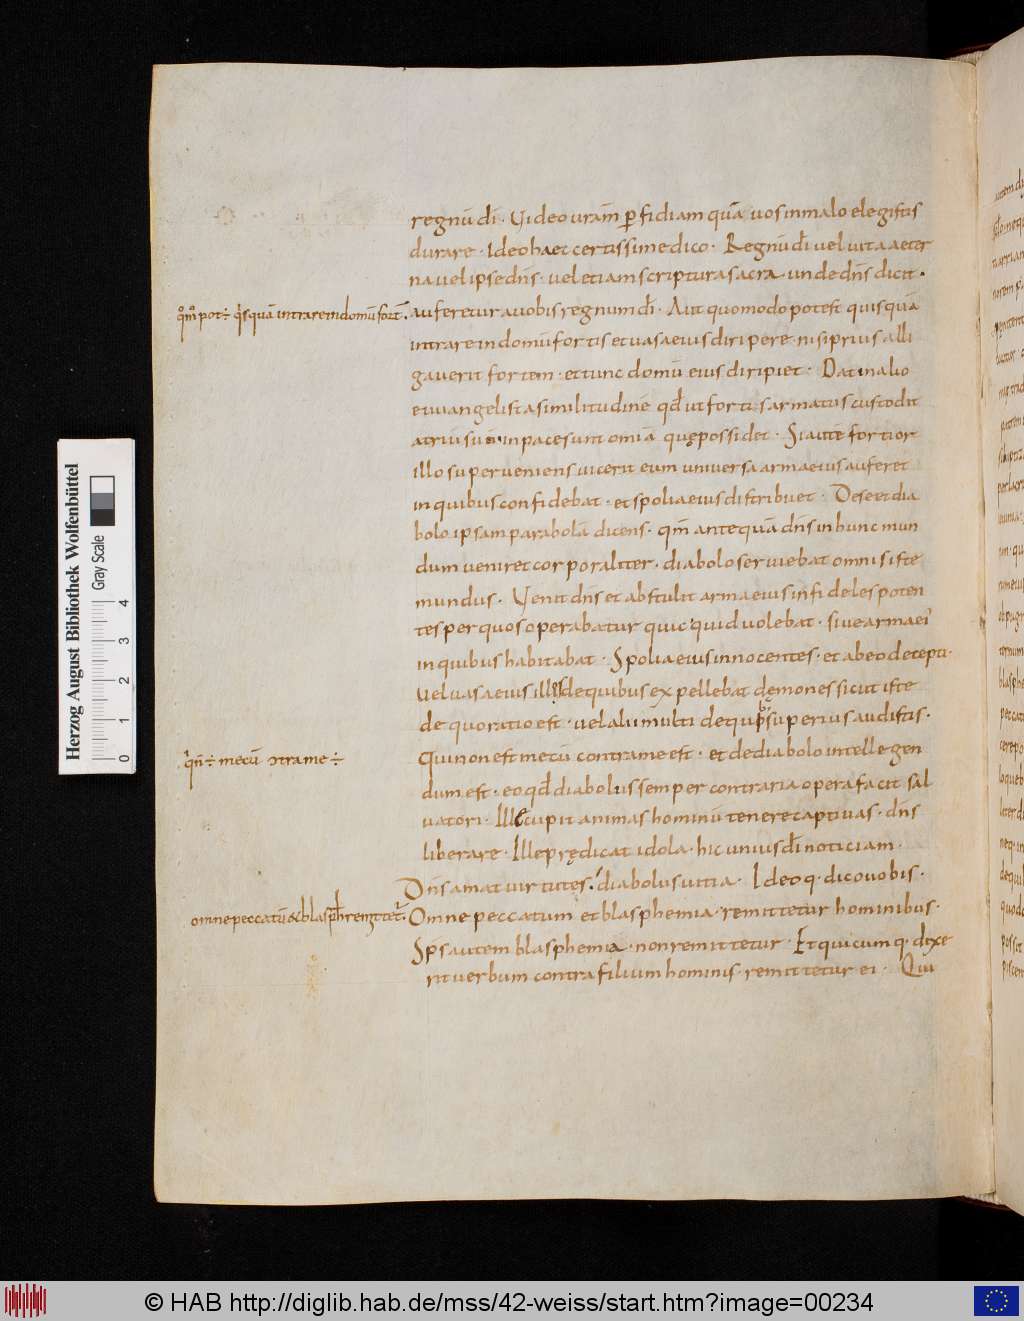 regnū dī · Video uram̄ ꝑfidiam quā uos in malo elegistis
durare · Ideo haec certissime dico · Regnū dī uel uita aeter
na uel ipse dn̄s · uel etiam scriptura sacra unde dn̄s dicit ·
qm̊mͦ pot÷ q̇squā intrare in domū fort̄ ·
auferetur a uobis regnum dī · Aut quomodo potest quisquā
intrare in domū fortis et uasa eius diripere · nisi prius alli
gauerit fortem · et tunc domū eius diripiet · Dat in alio
euuangelista similitudinē qd̄ ut fortis armatus custodit
atriū suū · in pace sunt omīa quę possidet · Si autē fortior
illo superueniens uicerit eum uniuersa arma eius auferet
in quibus confidebat · et spolia eius distribuet · De se et dia
bolo ipsam parabolā dicens · qm̄ antequā dn̄s in hunc mun
dum ueniret corporaliter · diabolo seruiebat omnis iste
mundus · Venit dn̄s et abstulit arma eius infideles poten
tes per quos operabatur quicquid uolebat · siue arma ei'
in quibus habitabat · Spolia eius innocentes · et ab eo decepti ·
uel uasa eius illos de quibus expellebat dęmones sicut iste
de quo ratio est · uel alii multi de quib; superius audistis ·
q̇ n̄÷ mecū ɔtra me÷
Qui non est mecū contra me est · et de diabolo intellegen
dum est · eo qd̄ diabolus semper contraria opera facit sal
uatori · Ille cupit animas hominū tenere captiuas · dn̄s
liberare · Ille prędicat idola · hic unius dī noticiam ·
Dn̄s amat uirtutes · diabolus uitia · Ideo q · dico uobis ·
omne peccatū & blasph̄ remittet̄ ·
Omne peccatum et blasphemia · remittetur hominibus ·
Sp̄s autem blasphemia · non remittetur · Et quicumq · dixe
rit uerbum contra filium hominis · remittetur ei · Qui
Herzog August Bibliothek Wolfenbüttel
Gray Scale
0 1 2 3 4
© HAB http://diglib.hab.de/mss/42-weiss/start.htm?image=00234